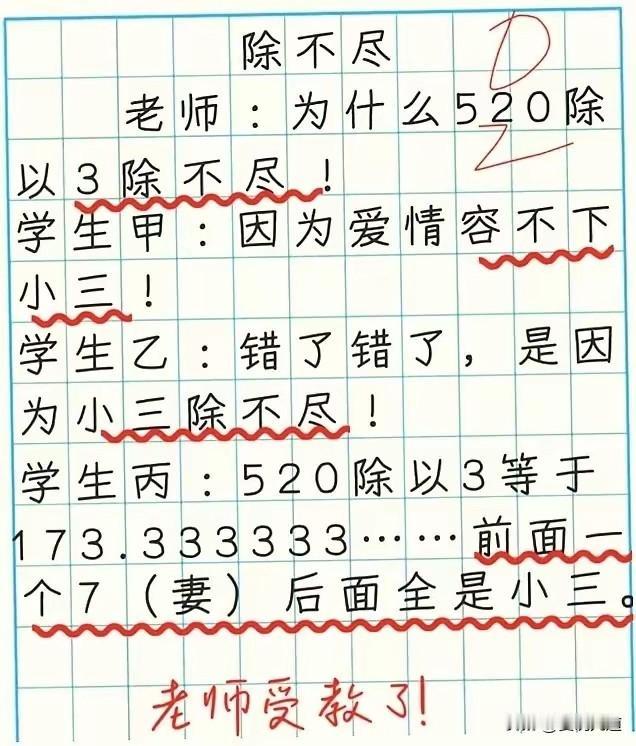 除不尽
老师：为什么520除
以3除不尽！
学生甲：因为爱情容不下
小三！
学生乙：错了错了，是因
为小三除不尽！
学生丙：520除以3等于
173.333333……前面一
个7（妻）后面全是小三。
老师受教了！